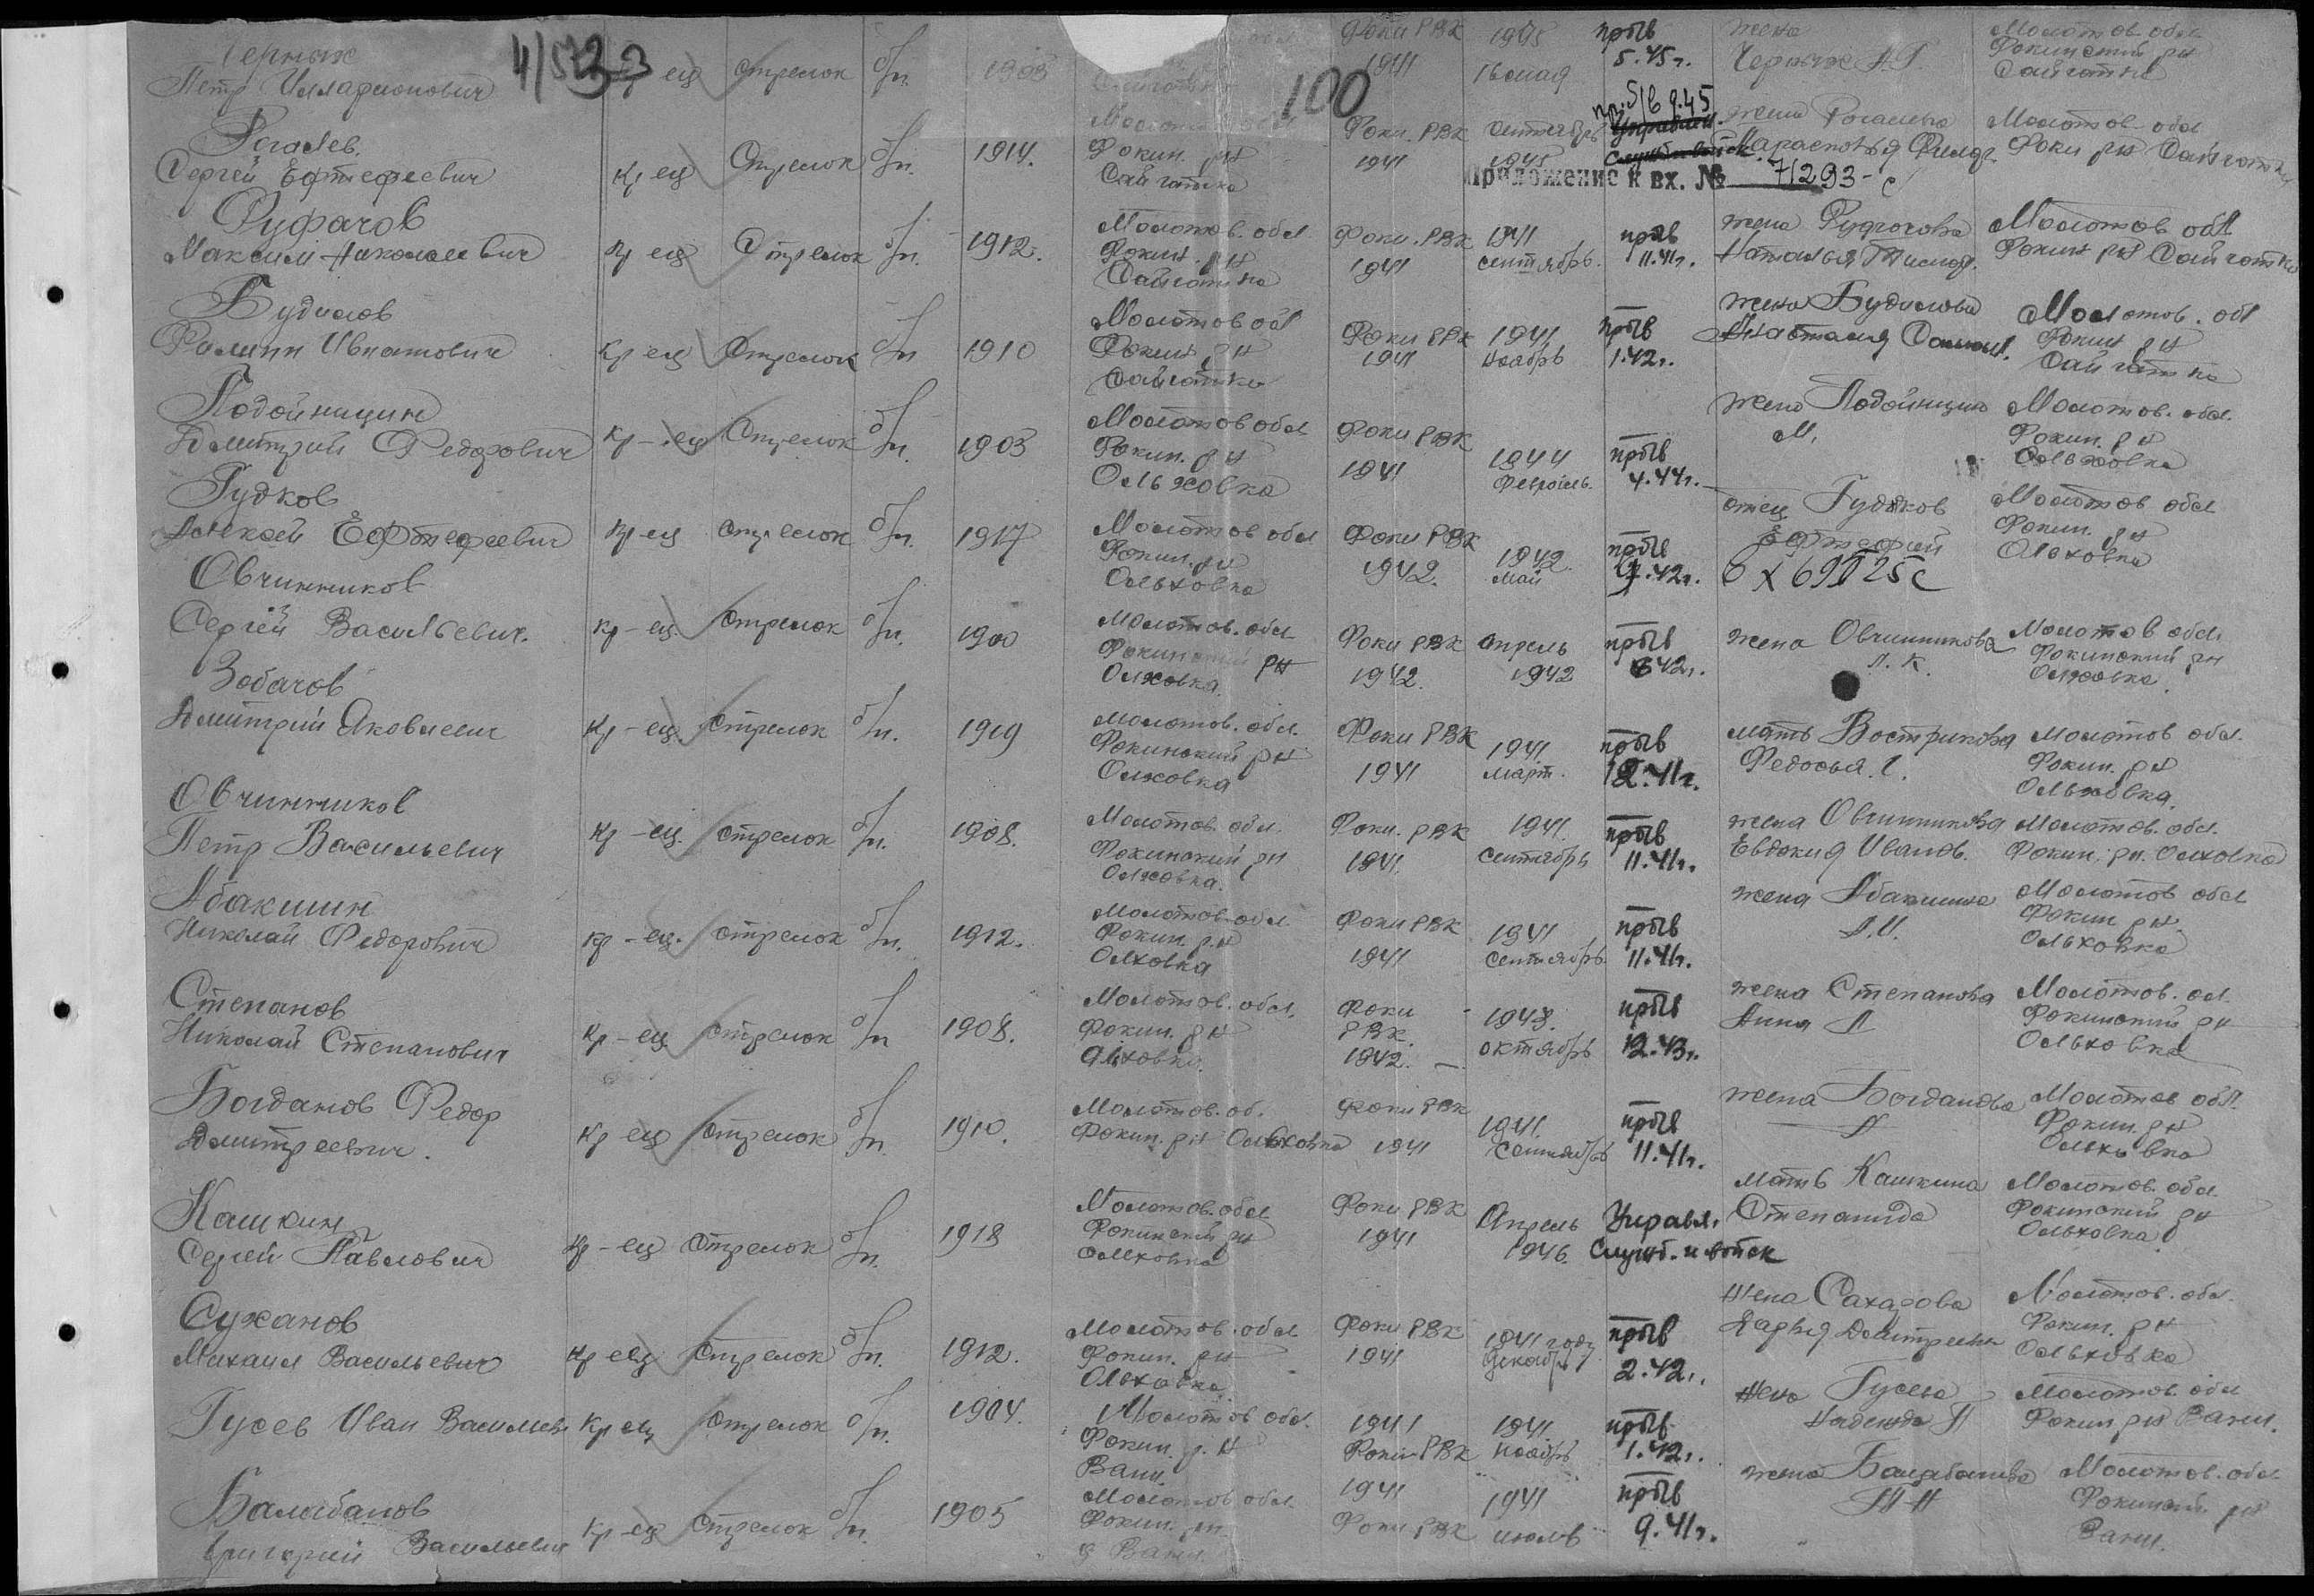 Черных
Петр Илларионович
4/5733
кр-ец стрелок б/п. 1903
100
Фоки РВК
1941
1945
16 мая
прбв
5.45г.
жена
Черных А.Г.
Молотов. обл
Фокинский рн
Сайгатка
Рогалев.
Сергей Ефтефеевич
кр ец Стрелок б/п. 1914.
Молотов обл
Фокин. рн
Сайгатка
Фоки. РВК
1941
сентябрь
1945
пр. 5/6 9.45
Управлен.
Служб и войск.
жена Рогалева
Парасковья Филат
Молотов обл
Фоки рн Сайгатка
Приложение к вх. № 71293-с
Руфачов
Максим Николаевич
кр ец Стрелок б/п. 1912.
Молотов. обл
Фокин. рн
Сайгатка
Фоки. РВК
1941
1941
сентябрь.
прбв
11.41г.
жена
Наталья
Молотов обл
Фокин рн Сайгатка
Будилов
Филипп Игнатович
кр ец Стрелок б/п 1910
Молотов обл
Фокин рн
Сайгатка
Фоки РВК
1941
1941
ноябрь
прбв
1.42г.
жена Будилова
Анастасия
Молотов. обл
Фокин рн
Сайгатка
Лодойницин
Дмитрий Федорович
кр-ец Стрелок б/п. 1903
Молотов обл
Фокин. рн
Ольховка
Фоки РВК
1941
1944
февраль.
прбв
4.44г.
жена Лодойницин
М.
Молотов. обл.
Фокин. рн
Ольховка
Гудков
Алексей Ефтефеевич
кр-ец стрелок б/п. 1917
Молотов обл
Фокин. рн
Ольховка
Фоки РВК
1942.
1942
май
прбв
7.42г.
отец Гудков
Ефтефей
Молотов обл
Фокин. рн
Ольховка
Овчинников
Сергей Васильевич.
кр-ец. стрелок б/п. 1900
Молотов. обл
Фокинский рн
Олховка.
Фоки РВК
1942.
апрель
1942
прбв
6.42г.
жена Овчинникова
Л. К.
Молотов обл
Фокинский рн
Олховка.
Зобачов
Дмитрий Яковлевич
кр-ец. стрелок б/п. 1919
Молотов. обл.
Фокинский рн
Олховка
Фоки РВК
1941
1941
март.
прбв
12.41г.
мать Вострикова
Федосья.
Молотов обл.
Фокин. рн
Ольховка.
Овчинников
Петр Васильевич
кр-ец. стрелок б/п. 1908.
Молотов. обл.
Фокинский рн
Олховка.
Фоки. РВК
1941.
1941.
сентябрь
прбв
11.41г.
жена Овчинникова
Евдокия Иванов.
Молотов. обл.
Фокин. рн. Олховка
Абакшин
Николай Федорович
кр-ец. стрелок б/п. 1912.
Молотов обл
Фокин. р.н
Олховка
Фоки РВК
1941
1941
сентябрь
прбв
11.41г.
жена Абакшина
А.И.
Молотов обл
Фокин рн.
Ольховка
Степанов
Николай Степанович
кр-ец стрелок б/п 1908.
Молотов. обл.
Фокин. рн
Ольховка.
Фоки
РВК.
1942.
1943.
октябрь
прбв
12.43г.
жена Степанова
Анна А
Молотов. ол.
Фокинский рн
Ольховка
Богданов Федор
Дмитреевич.
кр ец стрелок б/п. 1910.
Молотов. об.
Фокин. рн Ольховка
Фоки РВК
1941
1941.
Сентябрь
прбв
11.41г.
жена Богданова
А
Молотов обл.
Фокин. рн
Ольховка
Кашкин
Сергей Павлович
кр-ец стрелок б/п. 1918
Молотов. обл
Фокинский рн
Ольховка
Фоки РВК
1941
Апрель
1946.
Управл.
Служб. и войск
мать Кашкина
Степанида
Молотов. обл.
Фокинский рн
Ольховка
Суханов
Михаил Васильевич
кр-ец стрелок б/п. 1912.
Молотов. обл
Фокин. рн
Ольховка
Фоки РВК
1941
1941 году
декабрь
прбв
2.42г.
жена Сахарова
Дарья Дмитриевн
Молотов. обл.
Фокин. рн
Ольховка
Гусев Иван Васильев
кр ец стрелок б/п. 1904.
Молотов обл.
Фокин. р. н
Вани.
1941
Фоки РВК
1941.
ноябрь
прбв
1.42г.
жена Гусева
Надежда П
Молотов обл
Фокин рн Вани.
Балабанов
Григорий Васильевич
кр-ец стрелок б/п. 1905
Молотов обл.
Фокин. рн.
Вани.
1941
Фоки РВК
1941
июль
прбв
9.41г.
жена Балабанова
Молотов. обл
Фокинский рн
Вани.